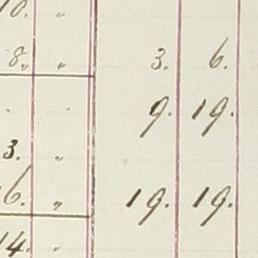 10. "
8. " 3. 6.
. . 9. 19.
3. "
6. " 19. 19.
14. "